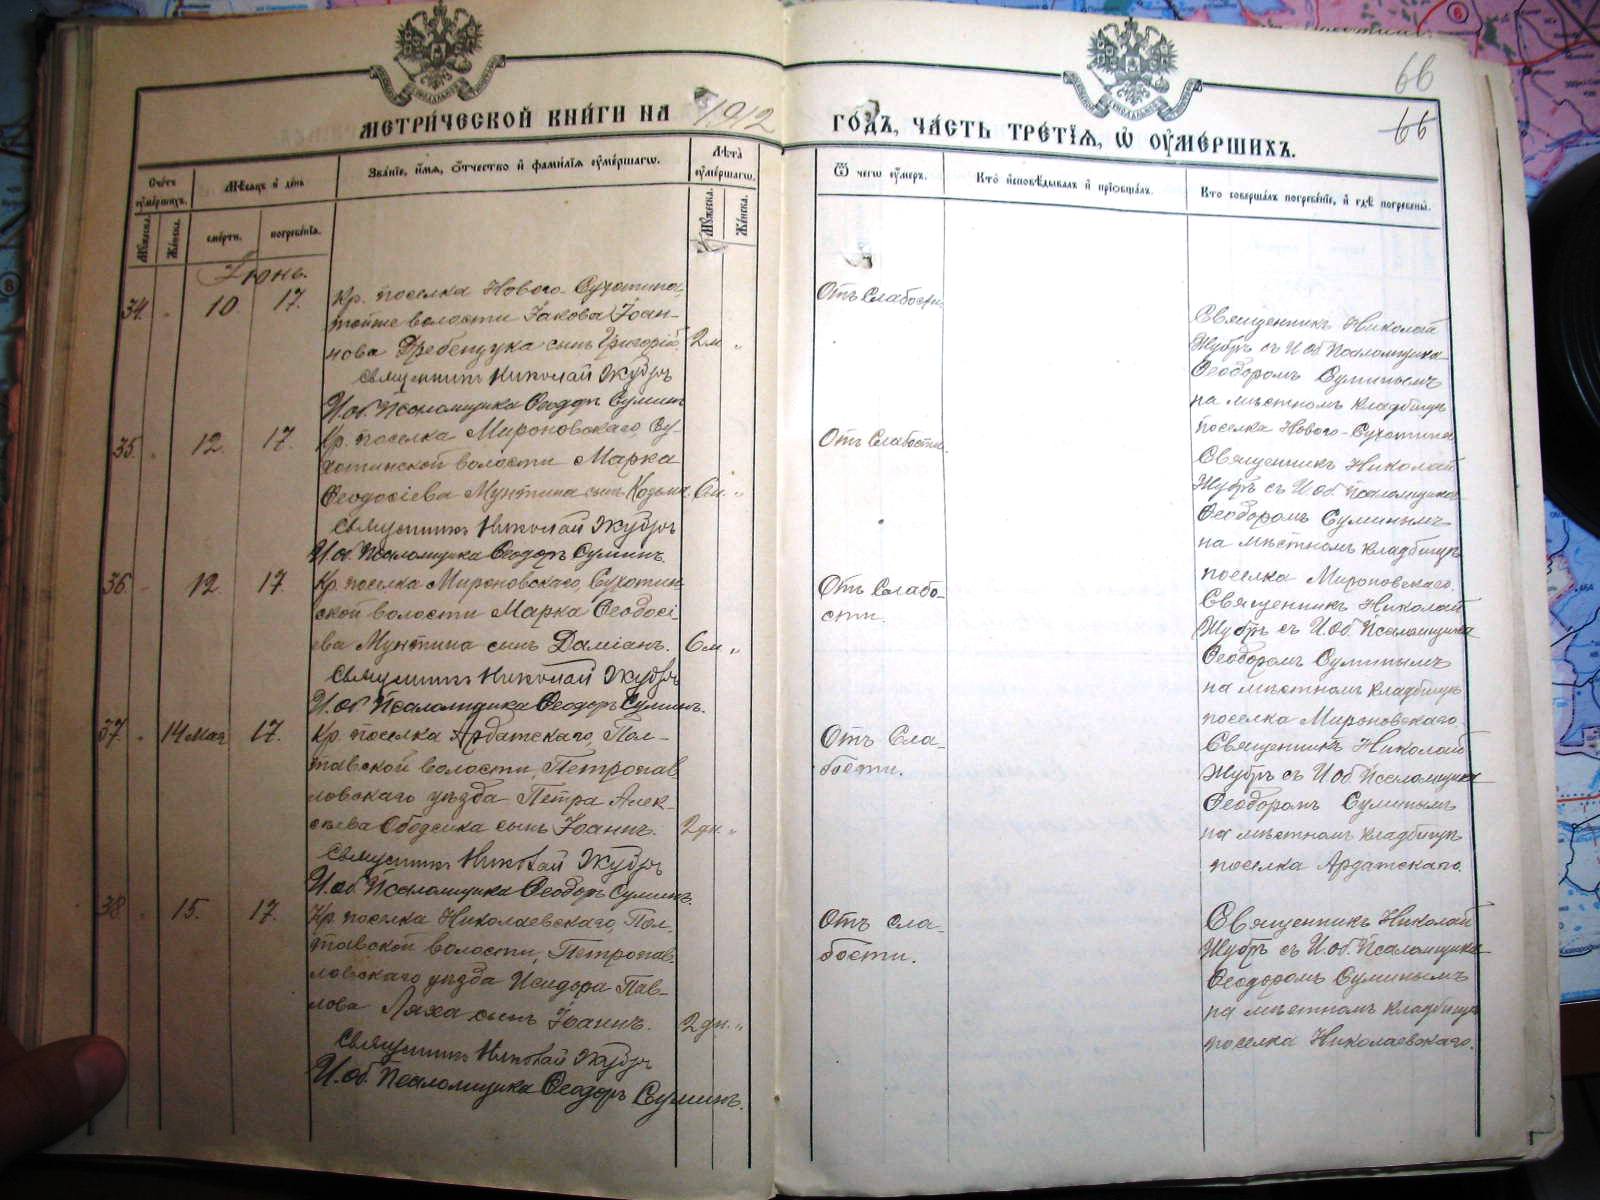 МЕТРИ́ЧЕСКОЙ КНИ́ГИ НА 1912
ГО́ДЪ, ЧА́СТЬ ТРЕ́ТІЯ, Ѡ ОУМЕ́РШИХЪ.
66
66
Сче́тъ оумершихъ.
Мѣсяцъ и день
Зва́ніе, и́мя, ѻ́тчество и фами́лія оуме́ршагѡ.
Лѣта̀ оуме́ршагѡ.
Ѿ чегѡ̀ оу́меръ.
Кто̀ исповѣ́дывалъ и пріобща́лъ.
Кто соверша́лъ погребе́ніе, и гдѣ̀ погребены̀.
Му́жеска.
Же́нска.
сме́рти.
погребе́нія.
Му́жеска.
Же́нска.
Іюнь.
34. " 10. 17.
Кр. поселка Нового-Сухотина,
тойже волости Іакова Іоан-
нова Дребендука сынъ Григорій. 2 м. "
Священникъ Николай Жубръ
И. об. Псаломщика Ѳеодоръ Суминъ
Отъ Слабости.
Священникъ Николай
Жубръ съ И. об. Псаломщика
Ѳеодоромъ Суминымъ
на мѣстномъ кладбищѣ
поселка Новаго-Сухотина
35. " 12. 17.
Кр. поселка Мироновскаго, Су-
хотинской волости Марка
Ѳеодосіева Мунтина сынъ Козьма. 6 м. "
Священникъ Николай Жубръ
И. об. Псаломщика Ѳеодоръ Суминъ.
Отъ Слабости.
Священникъ Николай
Жубръ съ И. об. Псаломщика
Ѳеодоромъ Суминымъ
на мѣстномъ кладбищѣ
поселка Мироновскаго.
36. " 12. 17.
Кр. поселка Мироновскаго, Сухотин-
ской волости Марка Ѳеодосі-
ева Мунтина сынъ Даміанъ. 6 м. "
Священникъ Николай Жубръ
И. об. Псаломщика Ѳеодоръ Суминъ.
Отъ Слабо-
сти.
Священникъ Николай
Жубръ съ И. об. Псаломщика
Ѳеодоромъ Суминымъ
на мѣстномъ кладбищѣ
поселка Мироновскаго.
37. " 14 мая 17.
Кр. поселка Ардатскаго, Пол-
тавской волости, Петропав-
ловскаго уѣзда Петра Алек-
сѣева сынъ Іоаннъ. 2 дн. "
Священникъ Николай Жубръ
И. об. Псаломщика Ѳеодоръ Суминъ.
Отъ Сла-
бости.
Священникъ Николай
Жубръ съ И. об. Псаломщика
Ѳеодоромъ Суминымъ
на мѣстномъ кладбищѣ
поселка Ардатскаго.
38 " 15. 17.
Кр. поселка Николаевскаго, Пол-
тавской волости, Петропав-
ловскаго уѣзда Исидора Пав-
лова Ляха сынъ Іоаннъ. 2 дн. "
Священникъ Николай Жубръ
И. об. Псаломщика Ѳеодоръ Суминъ.
Отъ сла-
бости.
Священникъ Николай
Жубръ съ И. об. Псаломщика
Ѳеодоромъ Суминымъ
на мѣстномъ кладбищѣ
поселка Николаевскаго.